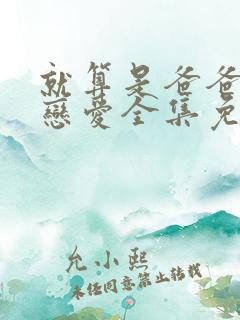 就算是爸爸
戀愛全集免
允小熙
未经同意禁止转载